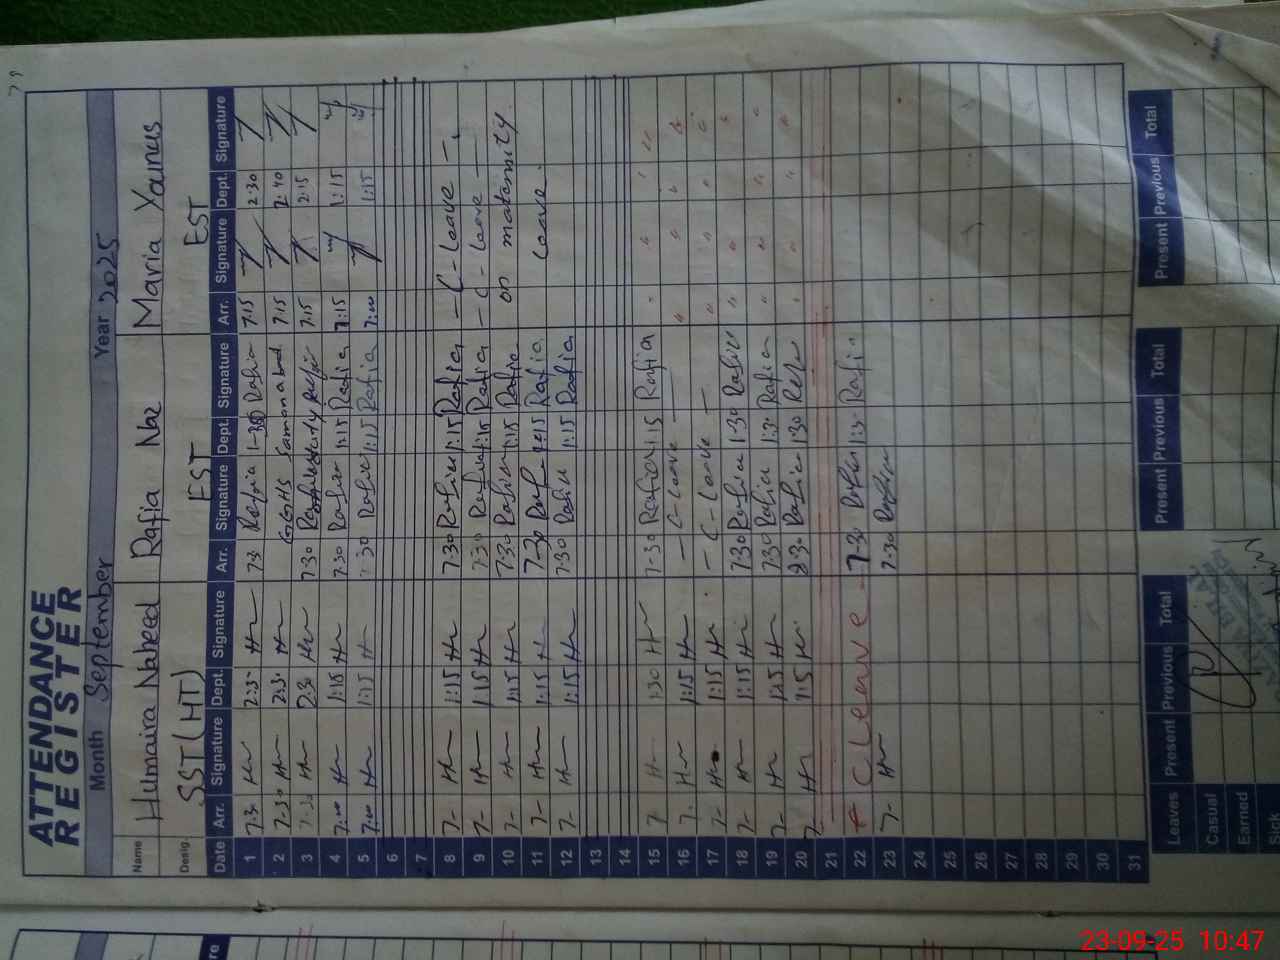 ATTENDANCE
REGISTER
Month September Year 2025
Name Humaira Naheed Rafia Naz Maria Younus
Desig. SST (HT) EST EST
Date Arr. Signature Dept. Signature Arr. Signature Dept. Signature Arr. Signature Dept. Signature
1 7:30 2:30 7:30 Rafia 1-30 Rafia 7:15 2:30
2 7-30 2:30 GGHS Samanabad 7:15 2:40
3 7:30 2:30 7:30 7:15 2:15
4 7:00 1:15 7:30 Rafia 1:15 Rafia 7:15 1:15
5 7:00 1:15 7:30 Rafia 1:15 Rafia 7:00 1:15
6
7
8 7- 1:15 7-30 Rafia 1:15 Rafia - C-leave -
9 7- 1:15 7:30 Rafia 1:15 Rafia - C-leave -
10 7- 1:15 7:30 Rafia 1:15 Rafia on maternity
11 7- 1:15 7-30 Rafia 1:15 Rafia leave.
12 7- 1:15 7:30 Rafia 1:15 Rafia
13
14
15 7- 1:30 7-30 Rafia 1:15 Rafia " " " "
16 7- 1:15 - C-leave - " " " "
17 7- 1:15 - C-leave - " " " "
18 7- 1:15 7:30 Rafia 1-30 Rafia " " " "
19 7- 1:15 7:30 Rafia 1:30 Rafia " " " "
20 7- 1:15 Rafia 1:30 " " " "
21
22 C leave 7-30 Rafia 1:30 Rafia
23 7- 7-30 Rafia
24
25
26
27
28
29
30
31
Leaves Present Previous Total Present Previous Total Present Previous Total
Casual
Earned
Sick
23-09-25 10:47